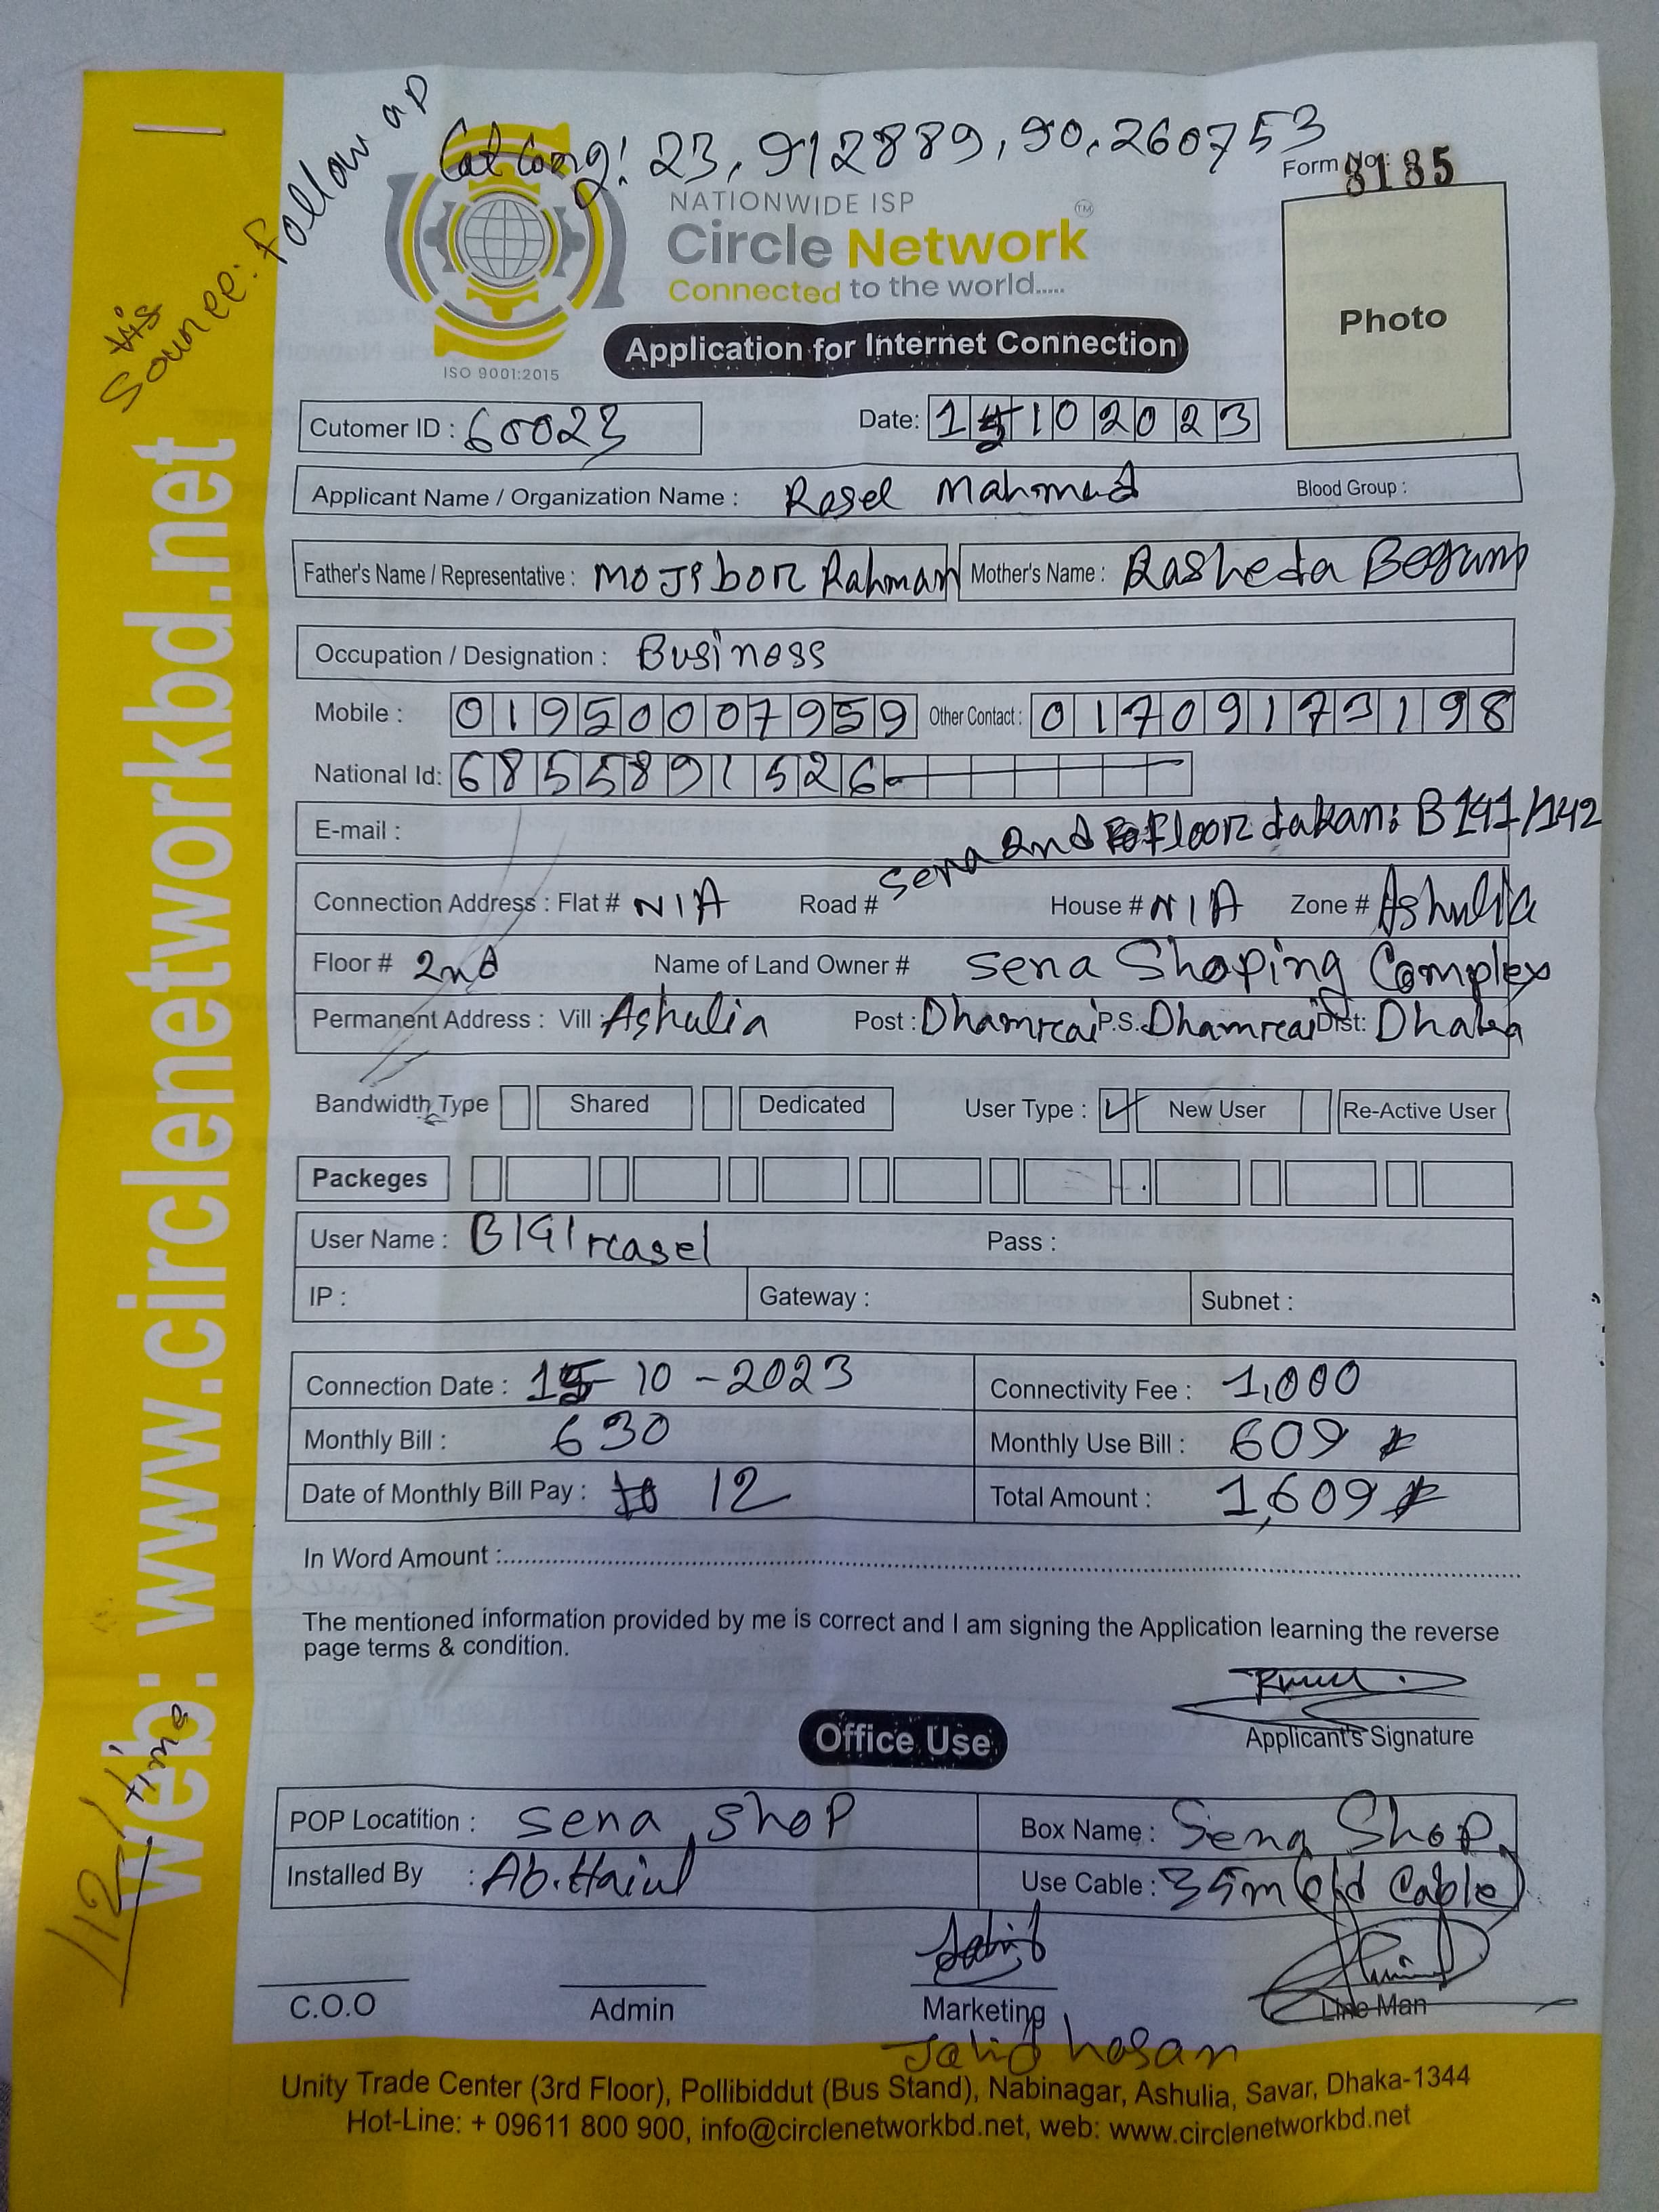 Follow up
Sounce:
Lat Long! 23.912889, 90.260753
Form No.: 8185
NATIONWIDE ISP
Circle Network TM
Connected to the world.....
ISO 9001:2015
Application for Internet Connection
Photo
Cutomer ID : 60023
Date: 15102023
Applicant Name / Organization Name : Rasel Mahmud Blood Group :
Father's Name / Representative : Mojibor Rahman Mother's Name : Rasheda Begum
Occupation / Designation : Business
Mobile : 01950007959 Other Contact : 01709173198
National Id: 6855891526
E-mail :
Sena 2nd Floor dakan: B 141/142
Connection Address : Flat # N/A Road # House # N/A Zone # Ashulia
Floor # 2nd Name of Land Owner # Sena Shoping Complex
Permanent Address : Vill : Ashulia Post : Dhamrai P.S. Dhamrai Dist: Dhaka
Bandwidth Type Shared Dedicated User Type : ✓ New User Re-Active User
Packeges
User Name : B141rasel Pass :
IP : Gateway : Subnet :
Connection Date : 15-10-2023 Connectivity Fee : 1,000
Monthly Bill : 630 Monthly Use Bill : 609
Date of Monthly Bill Pay : 12 Total Amount : 1,609
In Word Amount :
The mentioned information provided by me is correct and I am signing the Application learning the reverse
page terms & condition.
Applicant's Signature
Office Use
POP Locatition : Sena Shop Box Name : Sena Shop
Installed By : Ab. Use Cable : 35m (old Cable)
C.O.O Admin Marketing Line Man
Jahid hasan
Unity Trade Center (3rd Floor), Pollibiddut (Bus Stand), Nabinagar, Ashulia, Savar, Dhaka-1344
Hot-Line: + 09611 800 900, info@circlenetworkbd.net, web: www.circlenetworkbd.net
web: www.circlenetworkbd.net
time